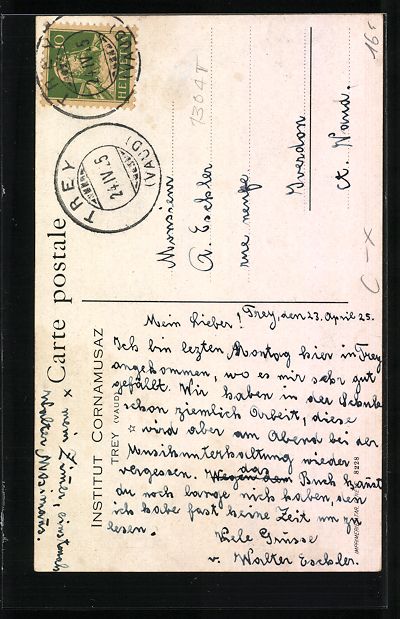 Carte postale
INSTITUT CORNAMUSAZ
TREY (VAUD)
HELVETIA
10
TREY
24.IV.25
(VAUD)
Monsieur
A. Eschler
rue neuve
Yverdon
Ct. Vaud.
Trey, den 23. April 25.
Mein Lieber!
Ich bin lezten Montag hier in Trey
angekommen, wo es mir sehr gut
gefällt. Wir haben in der Schule
schon ziemlich Arbeit, diese
wird aber am Abend bei der
Musikunterhaltung wieder
vergessen. Wegen dem das Buch kannst
du noch lange nich haben, den
ich habe fast keine Zeit um zu
lesen.
Viele Grüsse
v. Walter Eschler.
x mein Zimer
8228
16.-
C-x